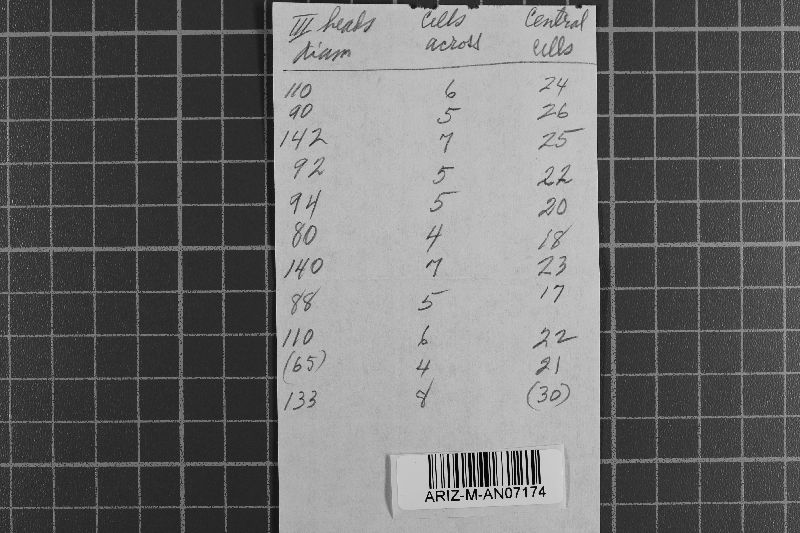 III heads Cells Central
diam across cells
110 6 24
90 5 26
142 7 25
92 5 22
94 5 20
80 4 18
140 7 23
88 5 17
110 6 22
(65) 4 21
133 8 (30)
ARIZ-M-AN07174